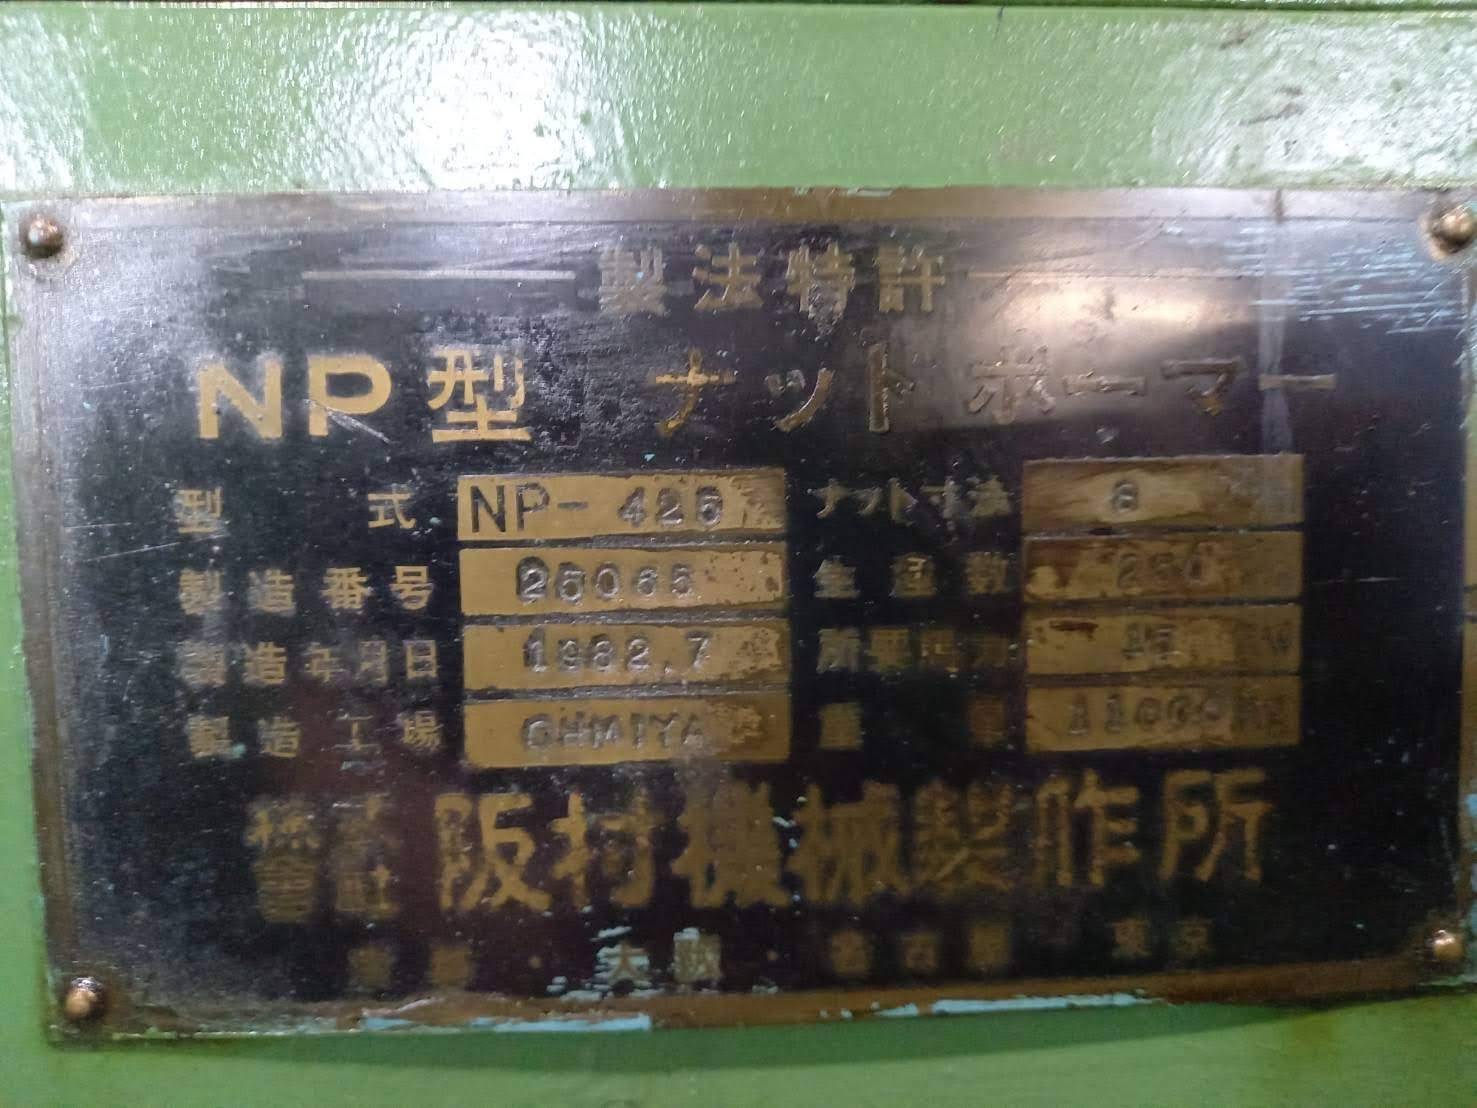 製法特許
NP型 ナットホーマー
型式 NP-425 ナット寸法 8
製造番号 25065 生産数 250
製造年月日 1982.7 所要馬力 15
製造工場 OHMIYA 重量 11000
株式會社 阪村機械製作所
京都・大阪・名古屋・東京